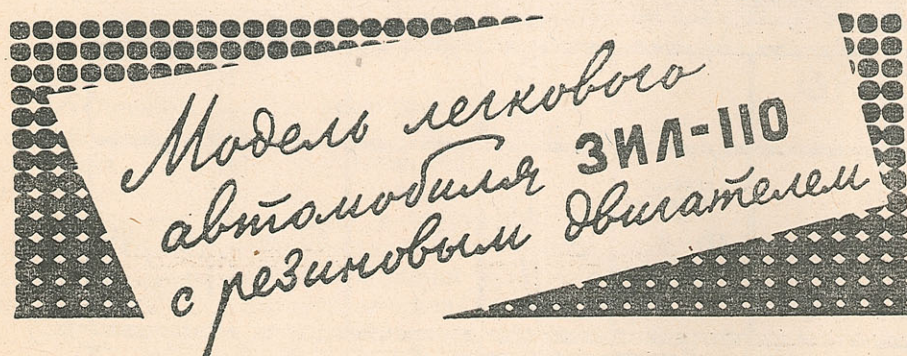 Модель легкового
автомобиля ЗИЛ-110
с резиновым двигателем